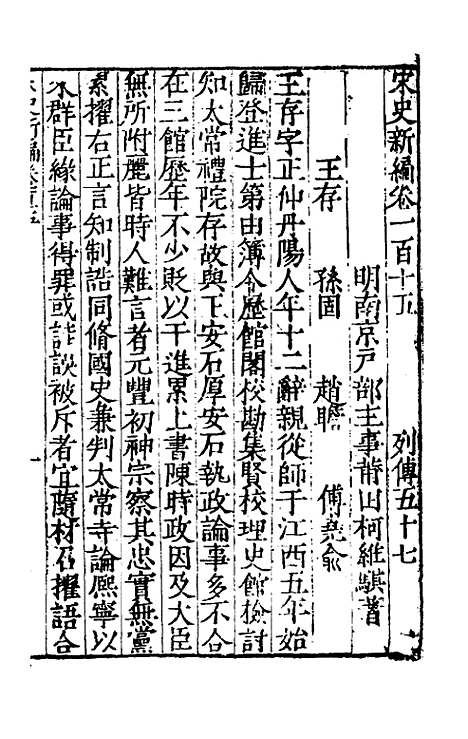 宋史新編卷一百十五 列傳五十七
明南京戸部主事莆田柯維騏著
王存 孫固 趙瞻 傅堯俞
王存字正仲丹陽人年十二辭親從師于江西五年始
歸登進士第由簿令歷館閣校勘集賢校理史館檢討
知太常禮院存故與王安石厚安石執政論事多不合
在三館歷年不少貶以干進累上書陳時政因及大臣
無所附麗皆時人難言者元豐初神宗察其忠實無黨
累擢右正言知制誥同脩國史兼判太常寺論熈寧以
來群臣緣論事得罪或詿誤被斥者宜隨材召擢語合